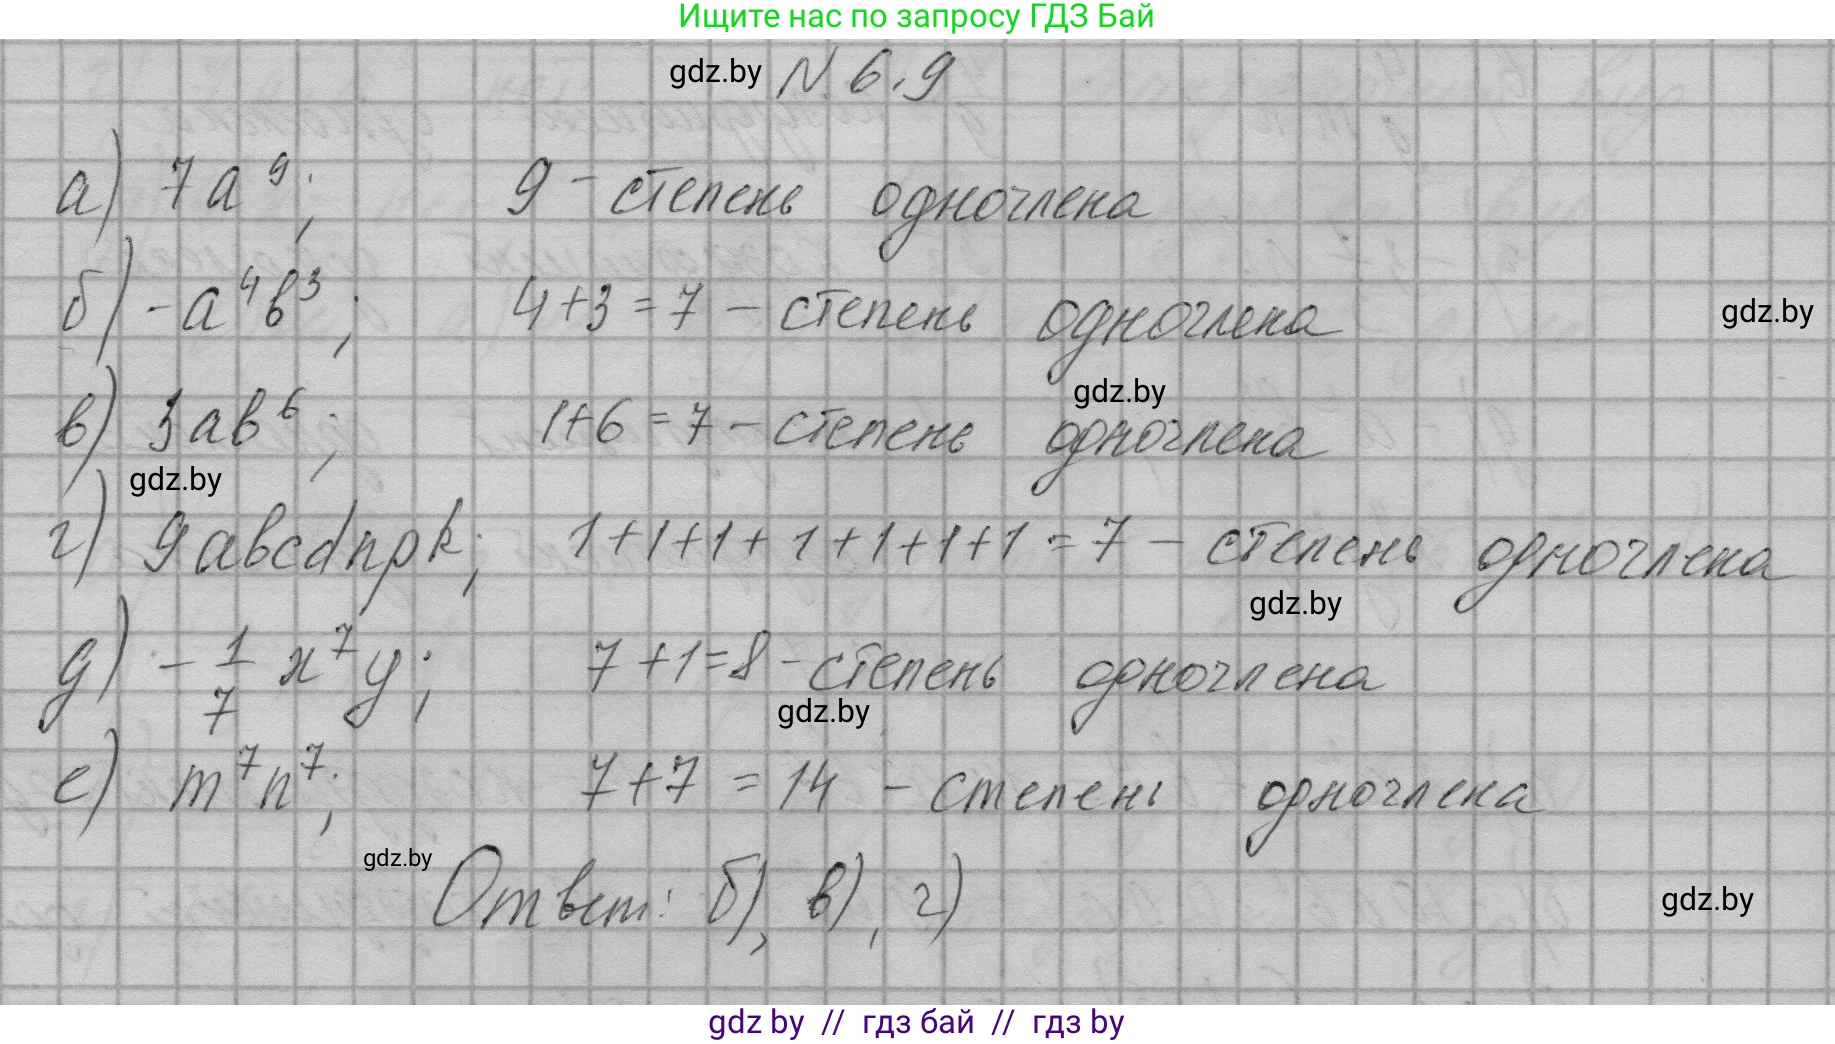 Ищите нас по запросу ГДЗ Бай
gdz.by N 6.9
а) 7a⁹; 9 - степень одночлена
б) -a⁴b³; 4+3=7 – степень одночлена
gdz.by
gdz.by
в) 3ab⁶; 1+6=7 – степень одночлена
gdz.by
г) 9abcdnpk; 1+1+1+1+1+1+1=7 – степень одночлена
gdz.by
д) -1/7 x⁷y; 7+1=8 - степень одночлена
gdz.by
е) m⁷n⁷; 7+7=14 - степень одночлена
gdz.by Ответ: б), в), г)
gdz.by
gdz by // гдз бай // гдз by